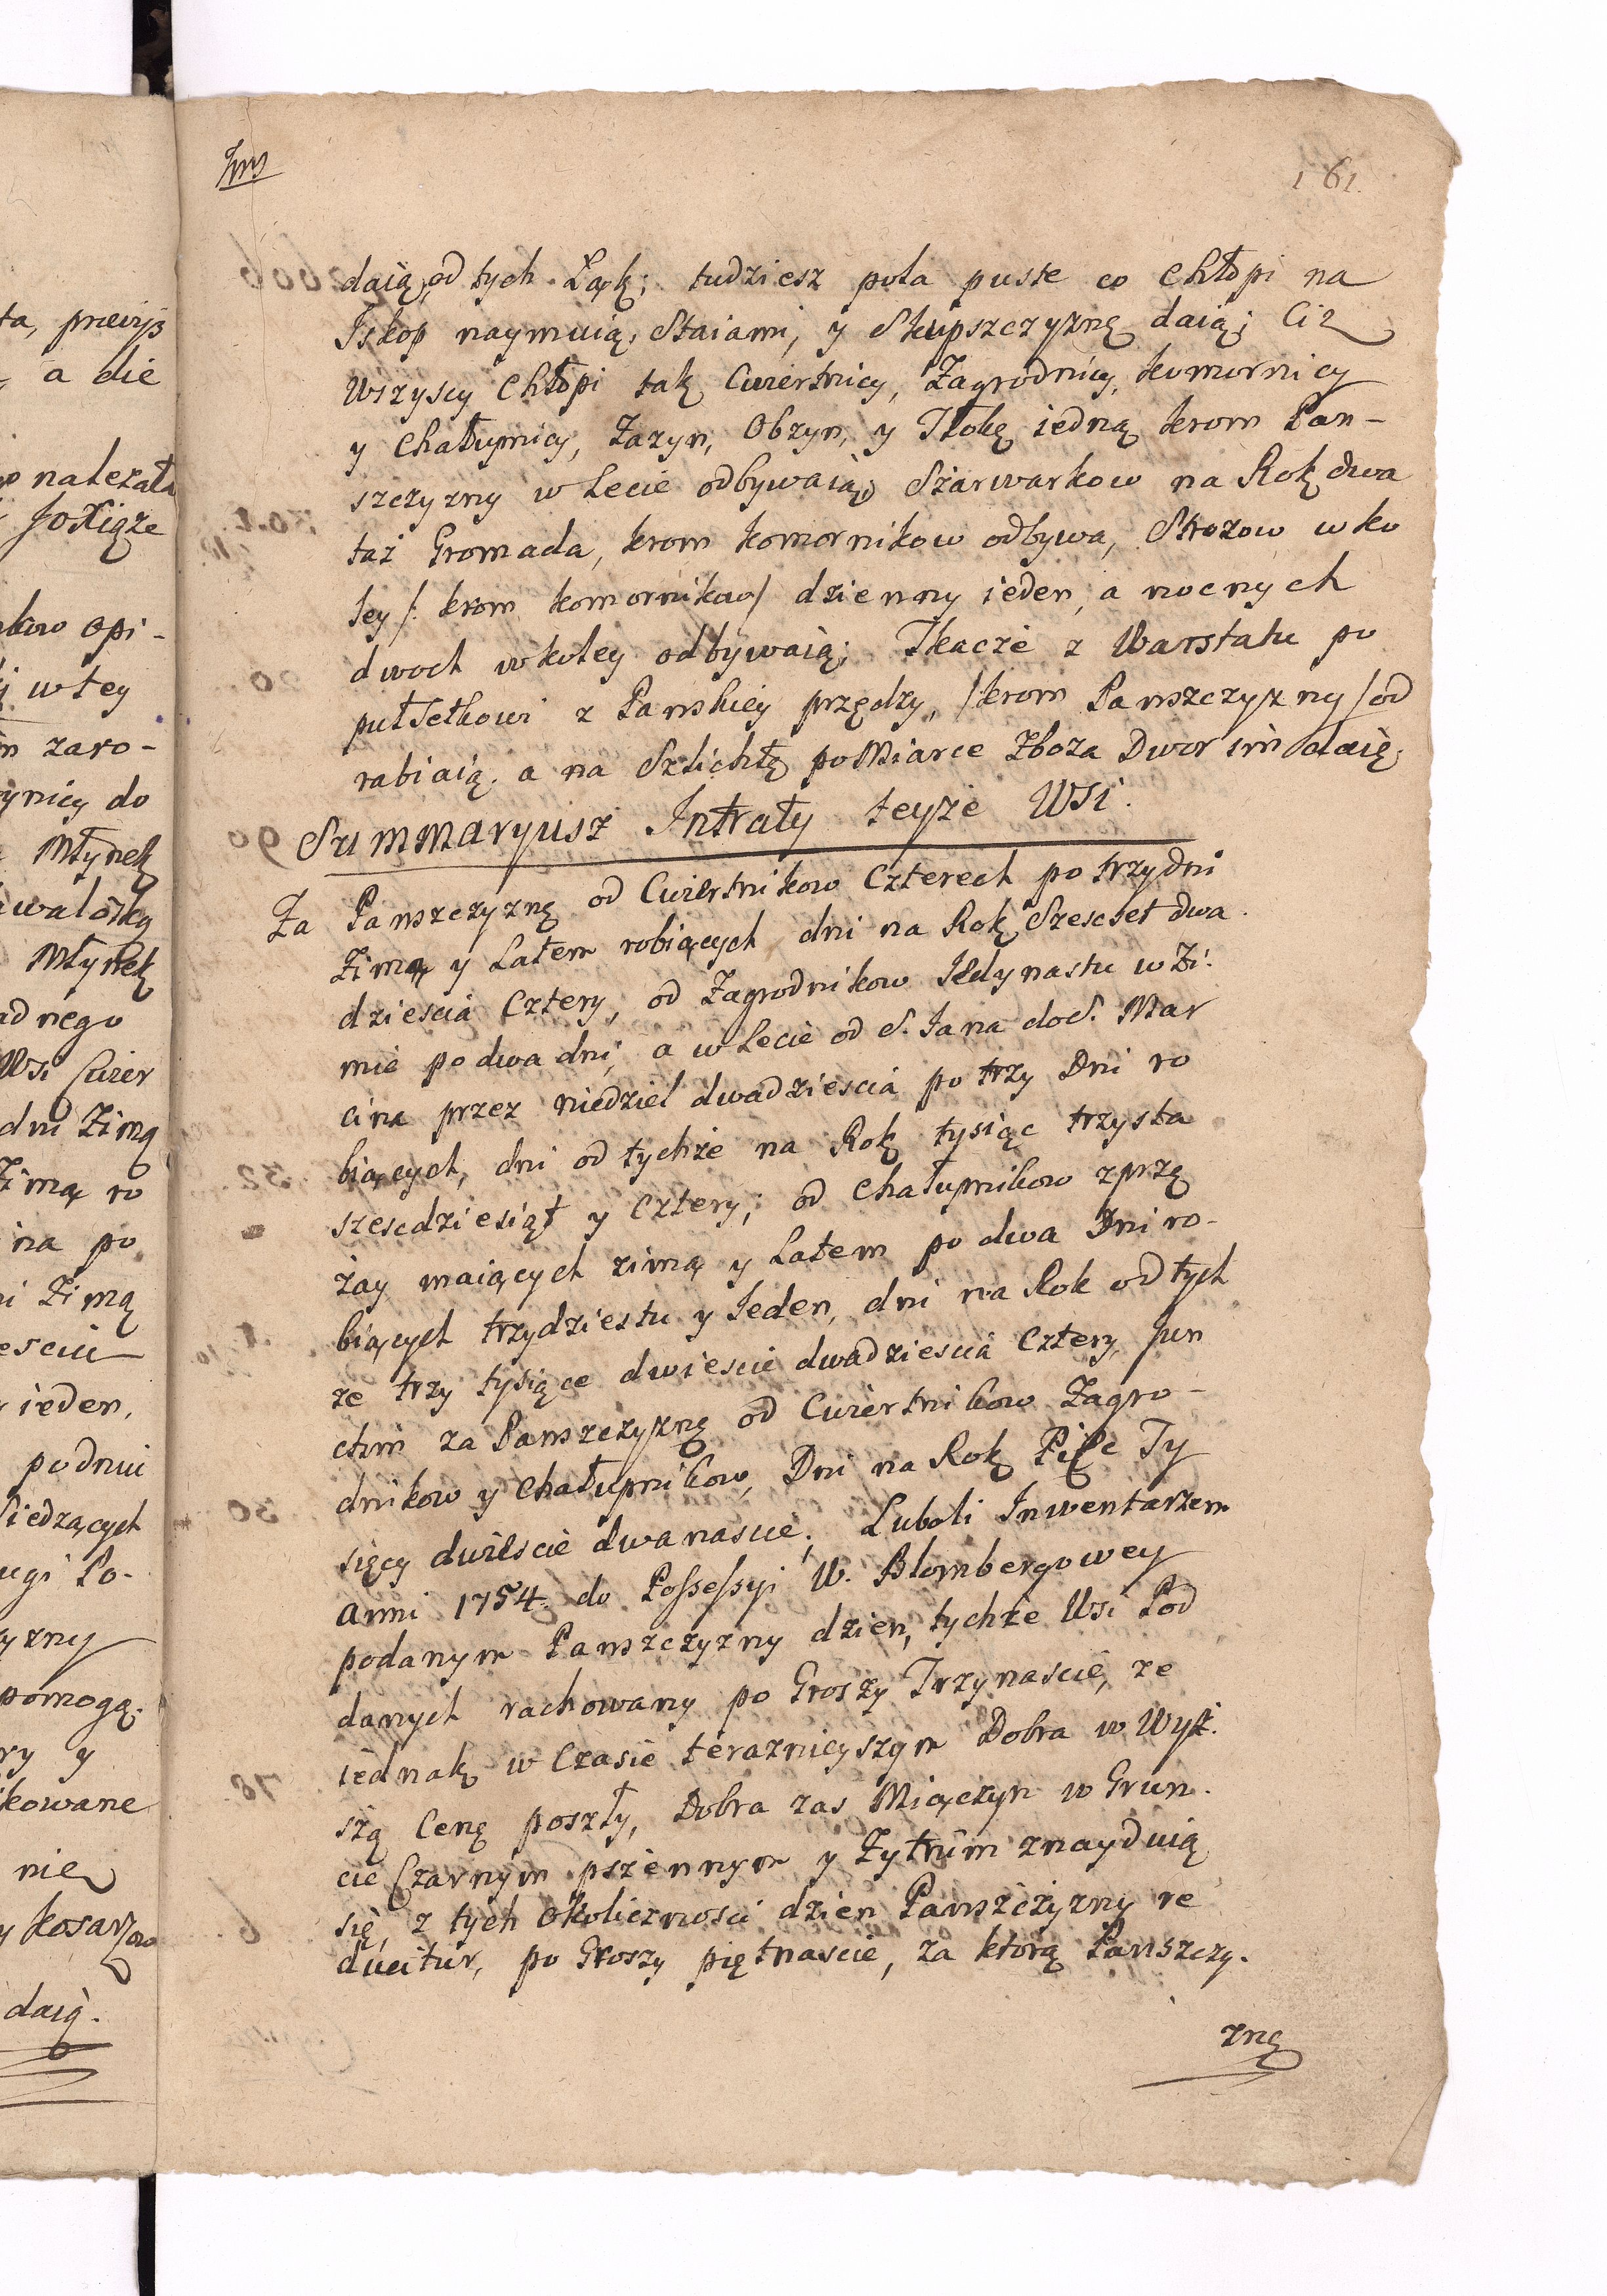 161.
daią od tych Łąk; tudziesz pola puste co Chłopi na
Iskop naymuią, Staiami, y Skupszczyznę daią; Ciz
Wszyscy Chłopi tak Cwiertnicy, Zagrodnicy, komornicy
y Chałupnicy, Zazyn, Obzyn, y Tłokę iedną krom Pan-
szczyzny w Lecie odbywaią; Szarwarkow na Rok dwa
taż Gromada, krom komornikow odbywa, Strozow w ko
ley /: krom komornikow/ dzienny ieden, a nocnych
dwoch w koley odbywaią; Tkacze z Warstatu po
puł Setkowi z Panskiey przędzy, /krom Panszczyzny/ od
rabiaią, a na Szlichtę po Miarce Zboza Dwor im daie.
Summaryusz Intraty teyże Wsi.
Za Panszczyznę od Cwiertnikow Czterech po trzy dni
Zimą y Latem robiących dni na Rok Szescset dwa
dziescia Cztery, od Zagrodnikow Jedynastu w Zi-
mie po dwa dni, a w Lecie od S. Jana do S. Mar
cina przez niedziel dwadziescia po trzy Dni ro
biących, dni od tychże na Rok tysiąc trzysta
szescdziesiąt y Cztery; od Chałupnikow zprzę
żay maiących zimą y Latem po dwa Dni ro-
biących trzydziestu y Jeden, dni na Rok od tych
ze trzy tysiące dwiescie dwadziescia Cztery, Jun
ctim za Panszczyznę od Cwiertnikow Zagro-
dnikow y Chałupnikow, Dni na Rok Pięc Ty
sięcy dwiescie dwanascie; Luboli Inwentarzem
Anni 1754. do Possessyi W. Blombergowey
podanym Panszczyzny dzien, tychże Wsi Pod
danych rachowany po Groszy Trzynascie, ze
iednak w Czasie teraznieyszym Dobra w Wyż-
szą Cenę poszły, Dobra zas Miączyn w Grun-
cie Czarnym pszennym y Zytnim znayduią
się, z tych Okolicznosci dzien Panszczyzny re
ducitur, po Groszy piętnascie, za ktorą Panszczy-
znę